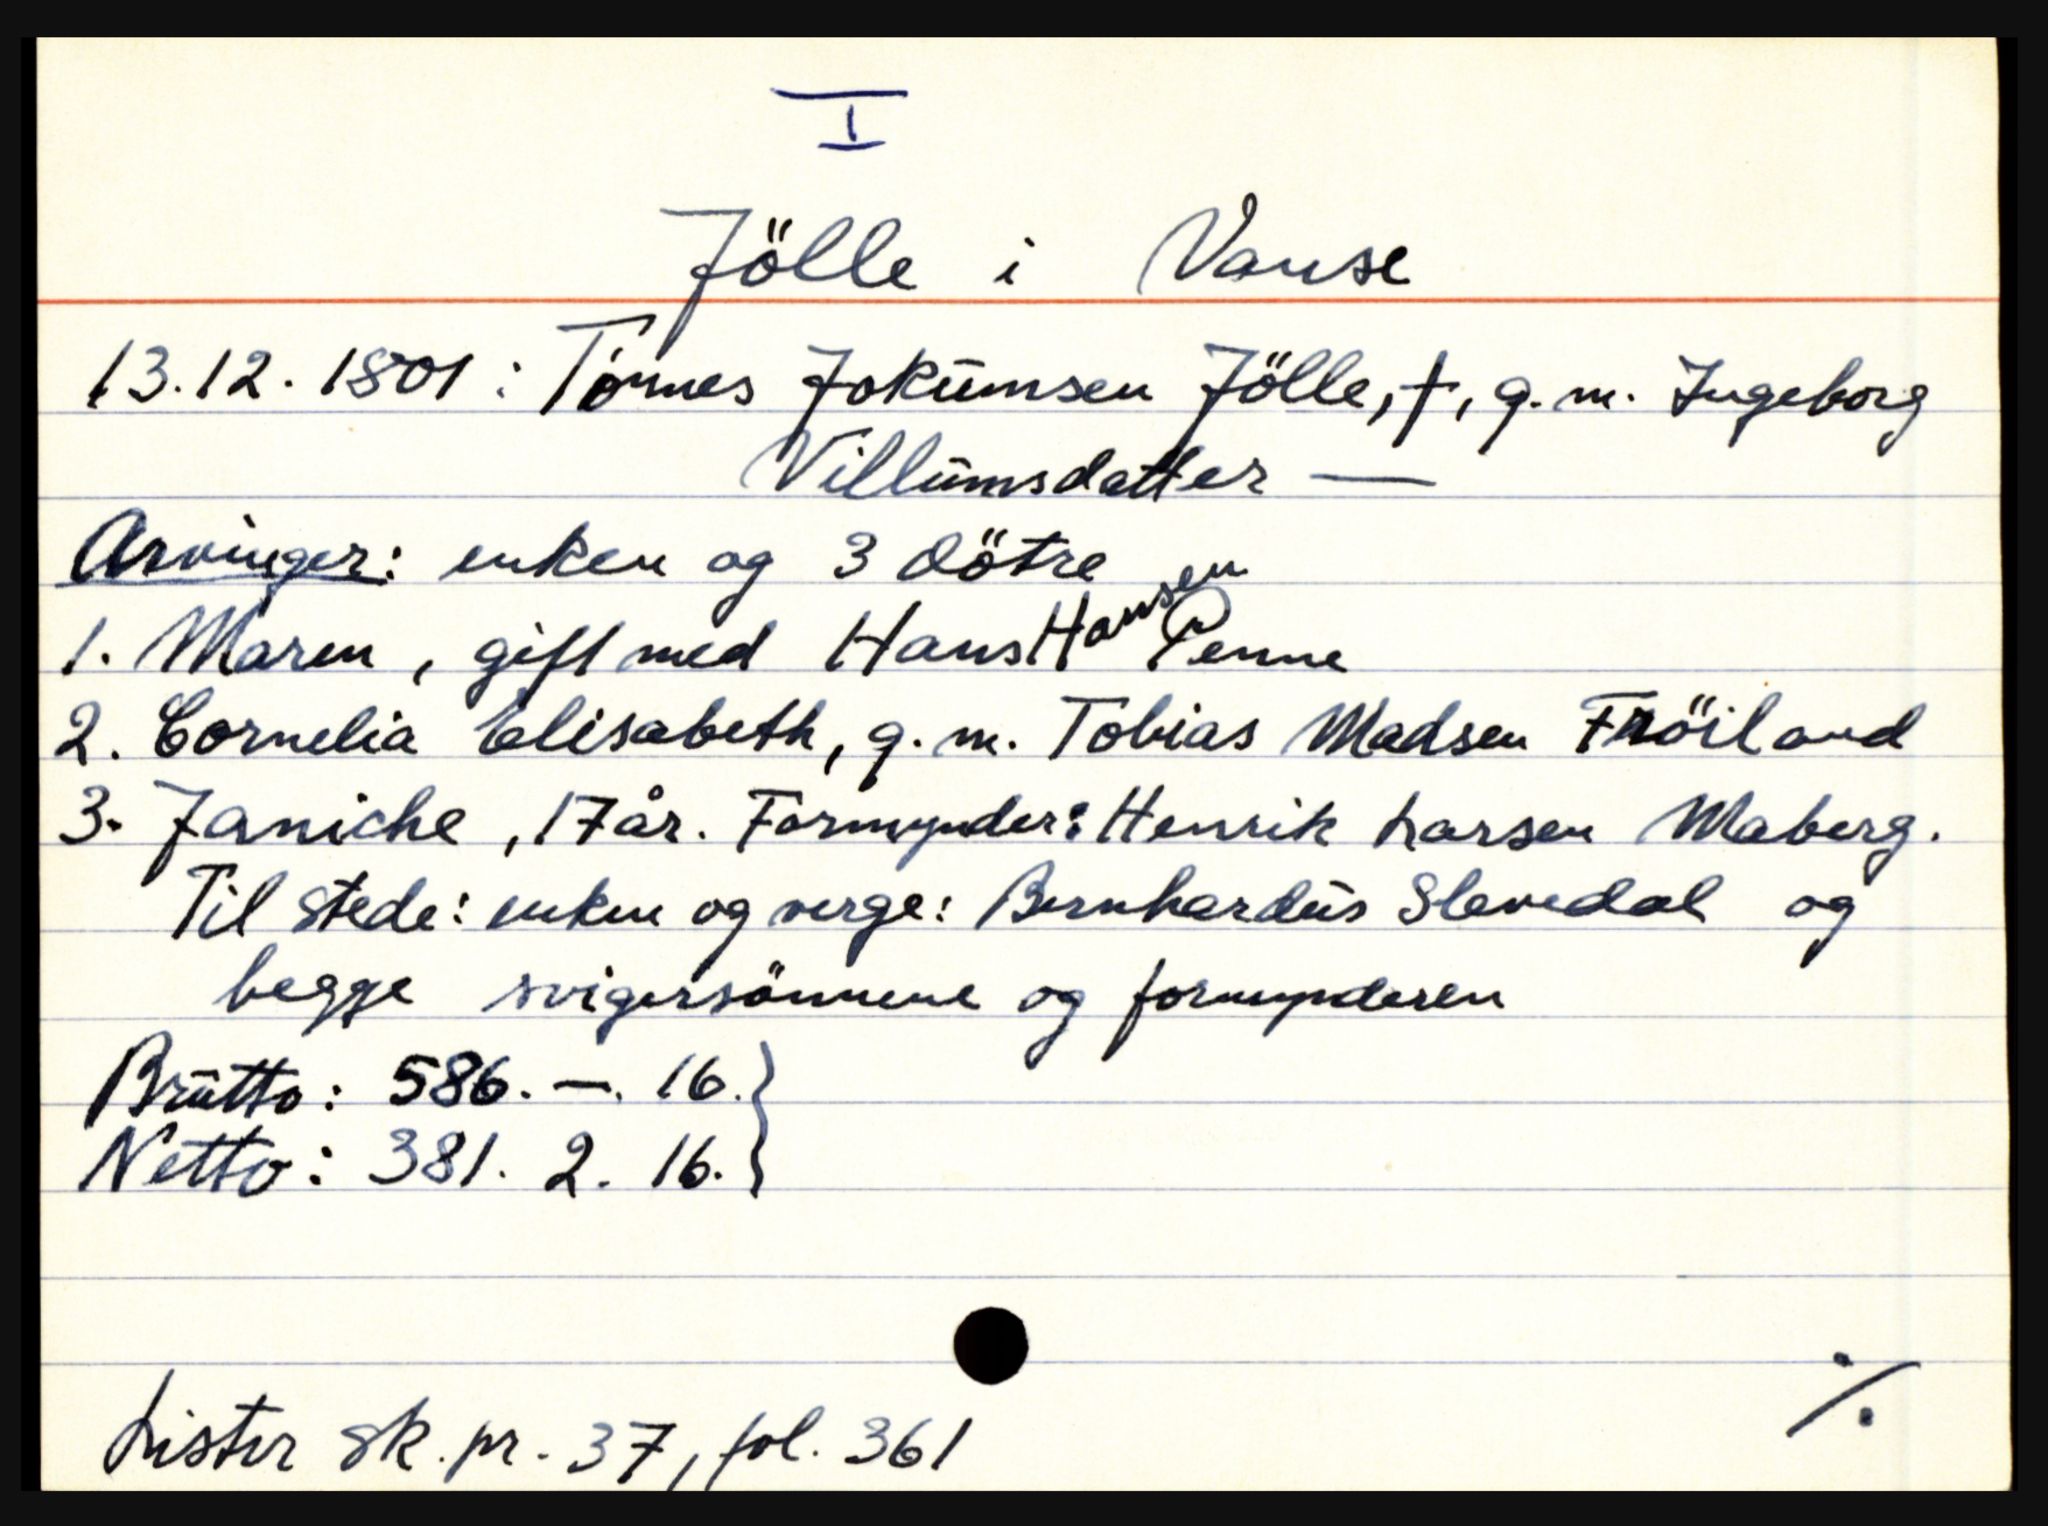 I
Jölle i Vanse
13.12.1801: Tönnes Jokumsen Jölle, †, g.m. Ingeborg
Villumsdatter —
Arvinger: enken og 3 døtre
1. Maren, gift med Hans Hansen Penne
2. Cornelia Elisabeth, g.m. Tobias Madsen Fröiland
3. Janiche, 17 år. Formynder: Henrik Larsen Maberg.
Til stede: enken og verge: Bernhardus Slevedal og
begge svigersönnene og formynderen
Brutto: 586. —. 16.}
Netto: 381. 2. 16.}
Lister sk. pr. 37, fol. 361
./.